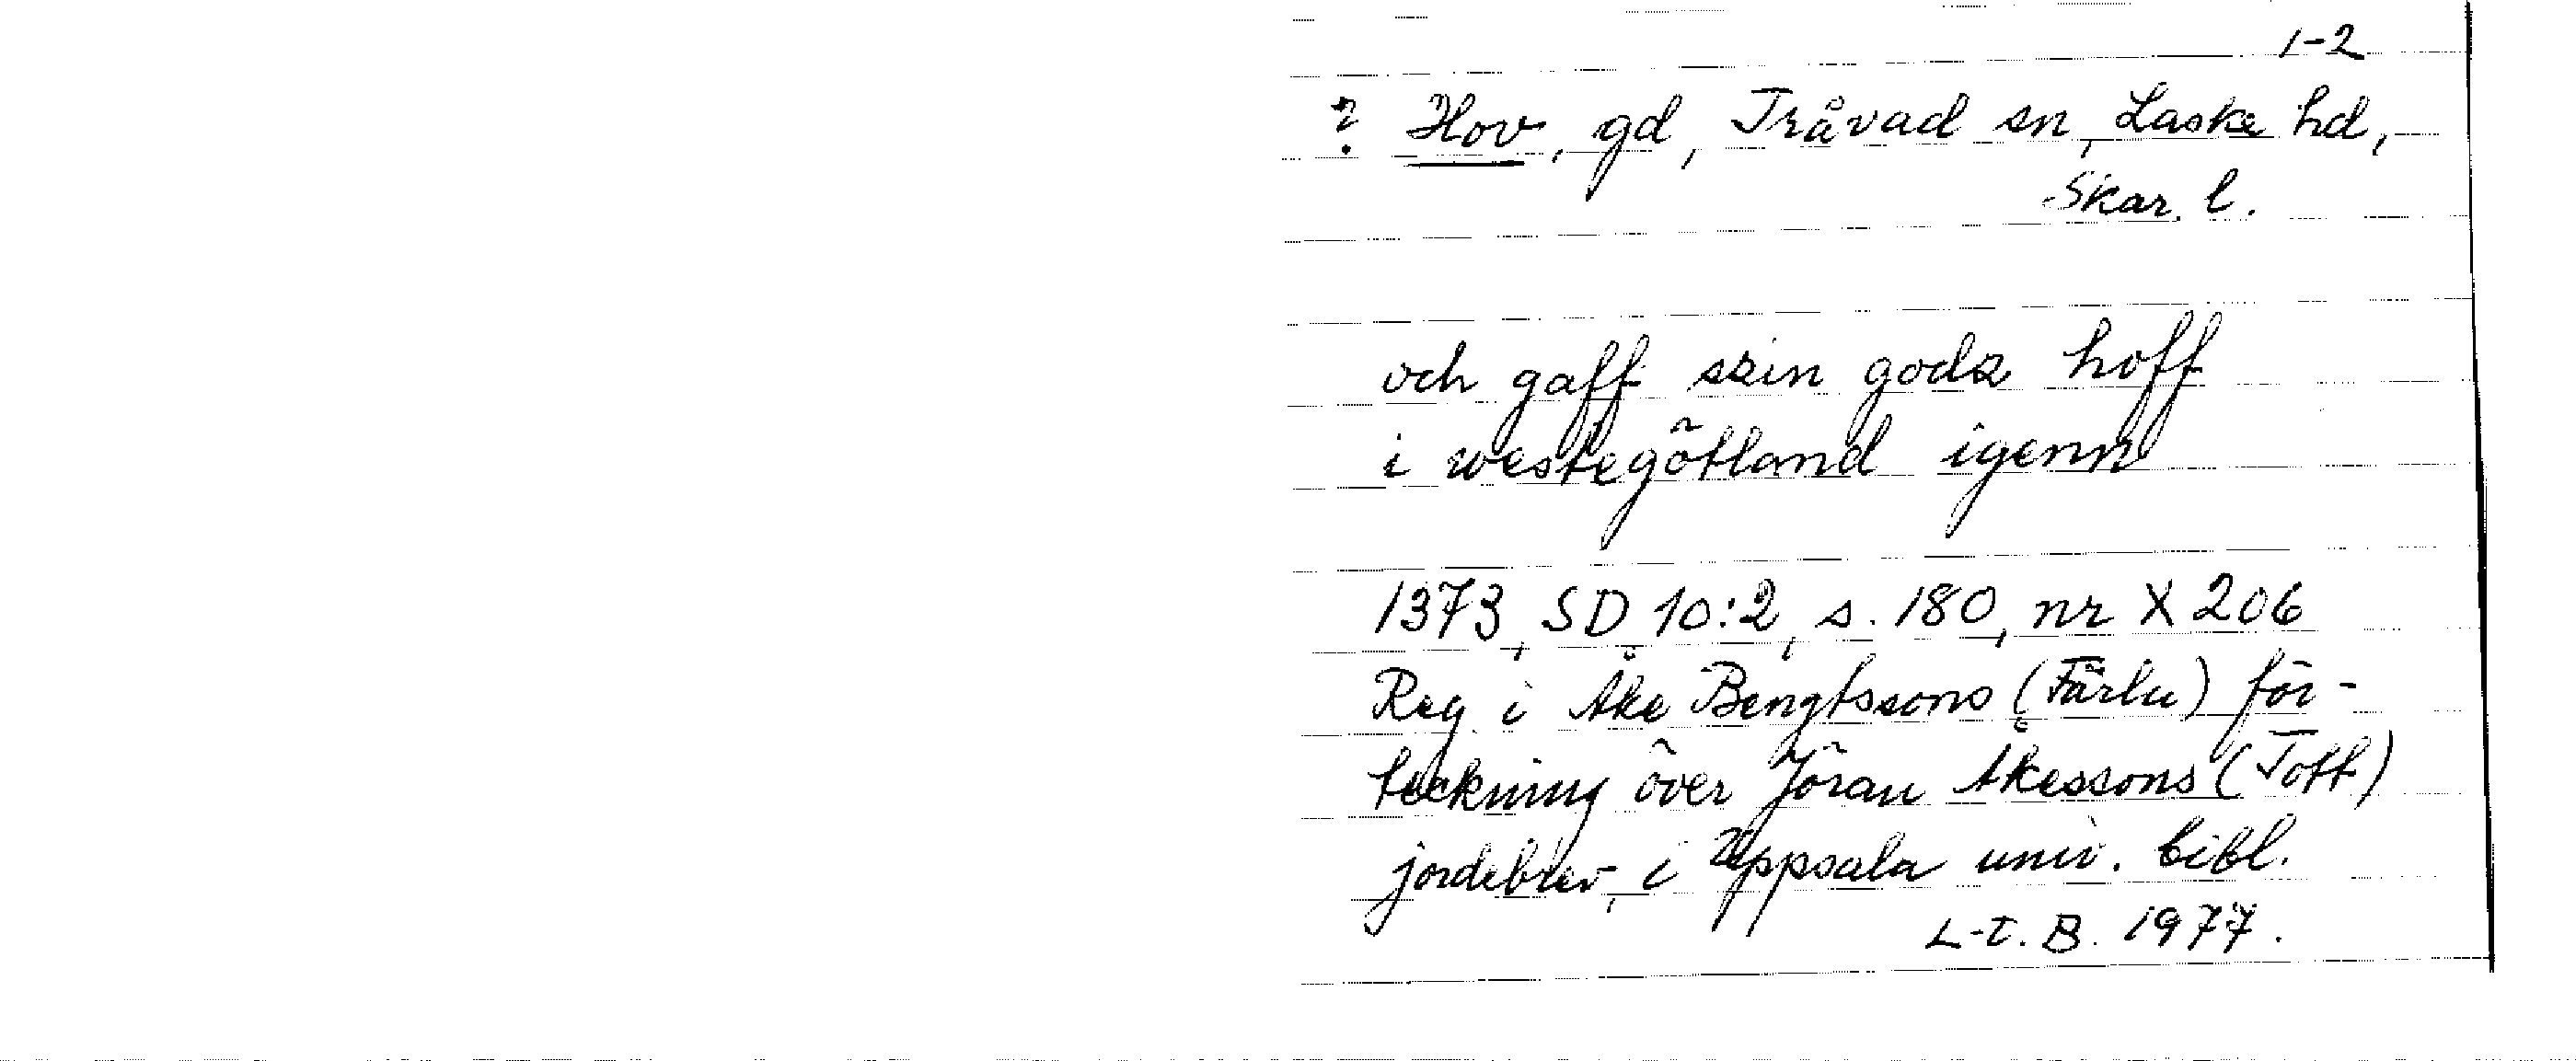 1-2
? Hov, gd, Tråvad sn, Laske hd,
Skar. l.
och gaff szin godz hoff
i westegötland igenn
1373, SD 10:2, s. 180, nr X 206
Reg i Åke Bengtssons (Färla) för-
teckning över Jöran Åkessons (Tott)
jordebrev, i Uppsala univ. bibl.
L-E. B. 1977.